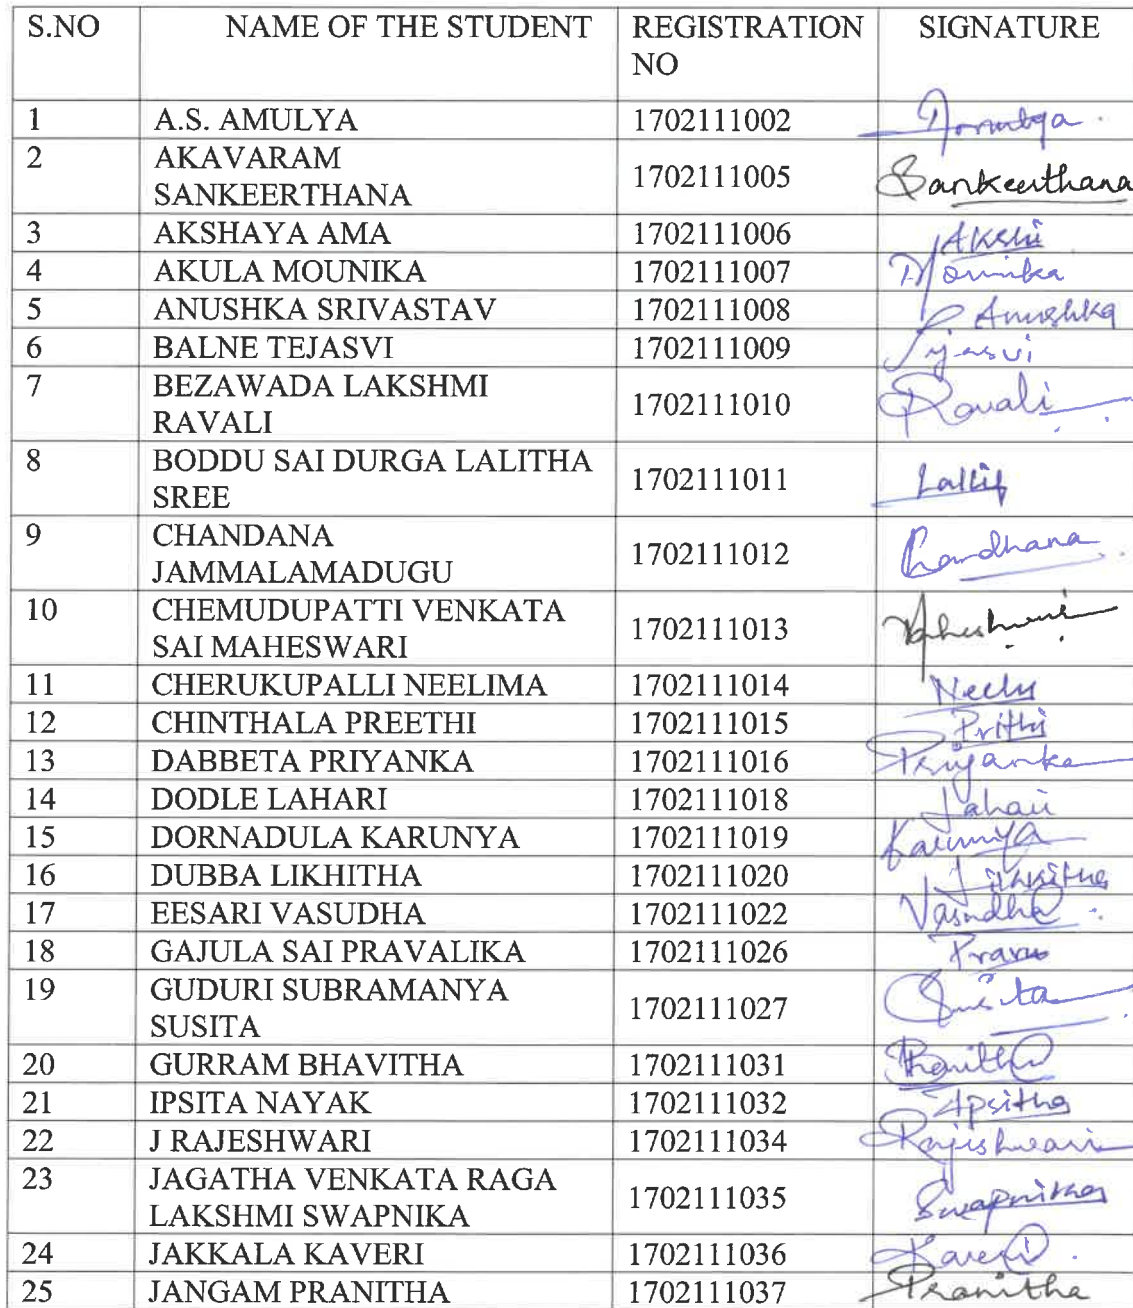 S.NO NAME OF THE STUDENT REGISTRATION SIGNATURE
NO
1 A.S. AMULYA 1702111002 Amulya
2 AKAVARAM
SANKEERTHANA 1702111005 Sankeerthana
3 AKSHAYA AMA 1702111006 Akshi
4 AKULA MOUNIKA 1702111007 Mounika
5 ANUSHKA SRIVASTAV 1702111008 Anushka
6 BALNE TEJASVI 1702111009 Tejasvi
7 BEZAWADA LAKSHMI
RAVALI 1702111010 Ravali
8 BODDU SAI DURGA LALITHA
SREE 1702111011
9 CHANDANA
JAMMALAMADUGU 1702111012 Chandhana
10 CHEMUDUPATTI VENKATA
SAI MAHESWARI 1702111013
11 CHERUKUPALLI NEELIMA 1702111014 Neelu
12 CHINTHALA PREETHI 1702111015 Prithi
13 DABBETA PRIYANKA 1702111016 Priyanka
14 DODLE LAHARI 1702111018 Lahari
15 DORNADULA KARUNYA 1702111019 Karunya
16 DUBBA LIKHITHA 1702111020 Likhitha
17 EESARI VASUDHA 1702111022 Vasudha
18 GAJULA SAI PRAVALIKA 1702111026 Pravu
19 GUDURI SUBRAMANYA
SUSITA 1702111027 Susita
20 GURRAM BHAVITHA 1702111031
21 IPSITA NAYAK 1702111032 Ipsitha
22 J RAJESHWARI 1702111034 Rajeshwari
23 JAGATHA VENKATA RAGA
LAKSHMI SWAPNIKA 1702111035 Swapnika
24 JAKKALA KAVERI 1702111036 Kaveri
25 JANGAM PRANITHA 1702111037 Pranitha